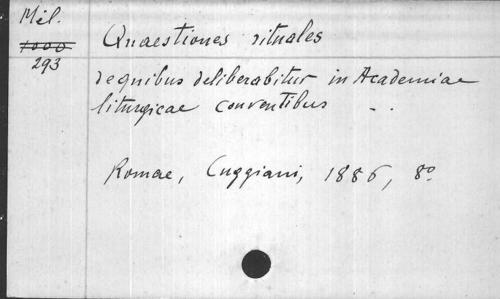 Mél.
1000
293
Quaestiones rituales
de quibus deliberabitur in Academiae
liturgicae conventibus . .
Romae, Cuggiani, 1886, 8º